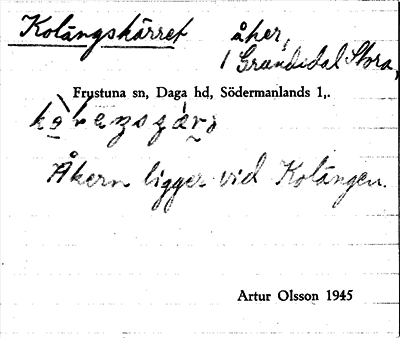 Kolängskärret åker,
1 Grundsdal Stora,
Frustuna sn, Daga hd, Södermanlands l,.
Åkern ligger vid Kolängen.
Artur Olsson 1945